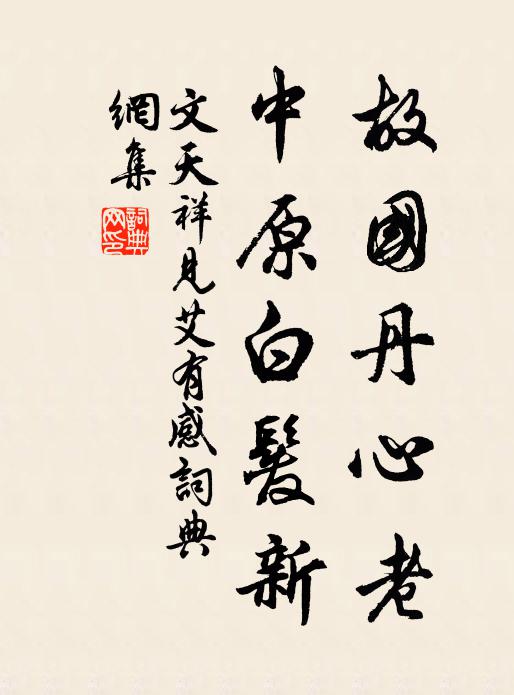 故國丹心老
中原白髮新
文天祥見艾有感詞典
網集
詞典網印